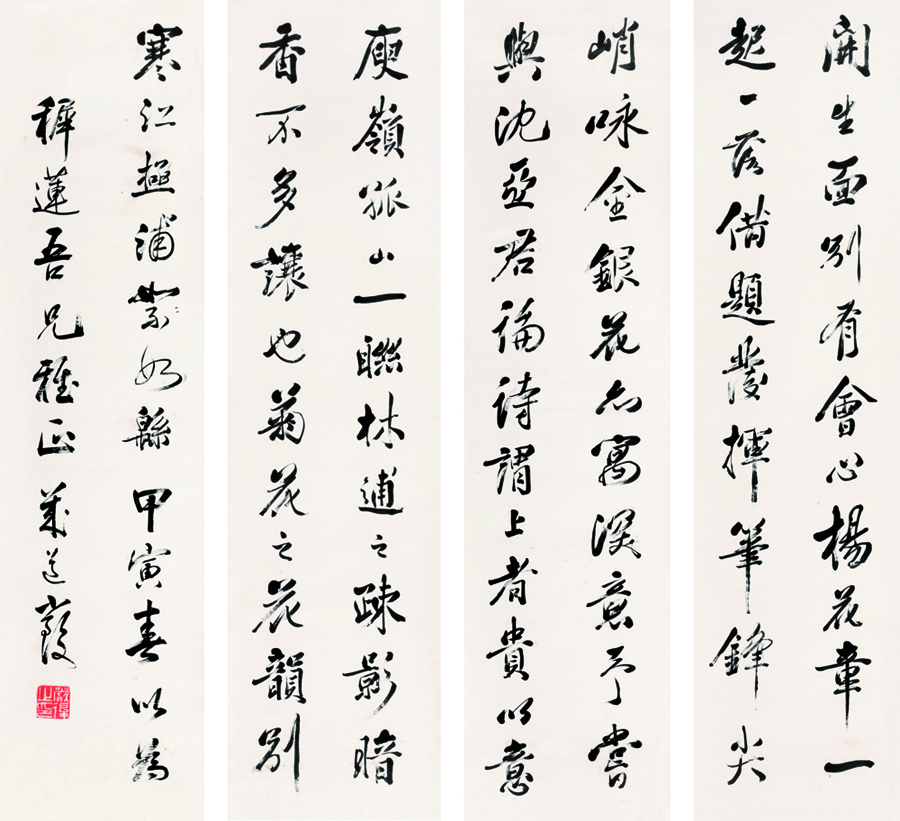 開生面別有會心楊花章一
起一落借題發揮筆鋒尖
峭咏金銀花亦寓深意予嘗
與沈亞君論詩謂上者貴以意
庾嶺孤山一聯林逋之疎影暗
香不多讓也菊花之花韻別
寒江極浦如緜 甲寅春以為
稺蓮吾兄雅正